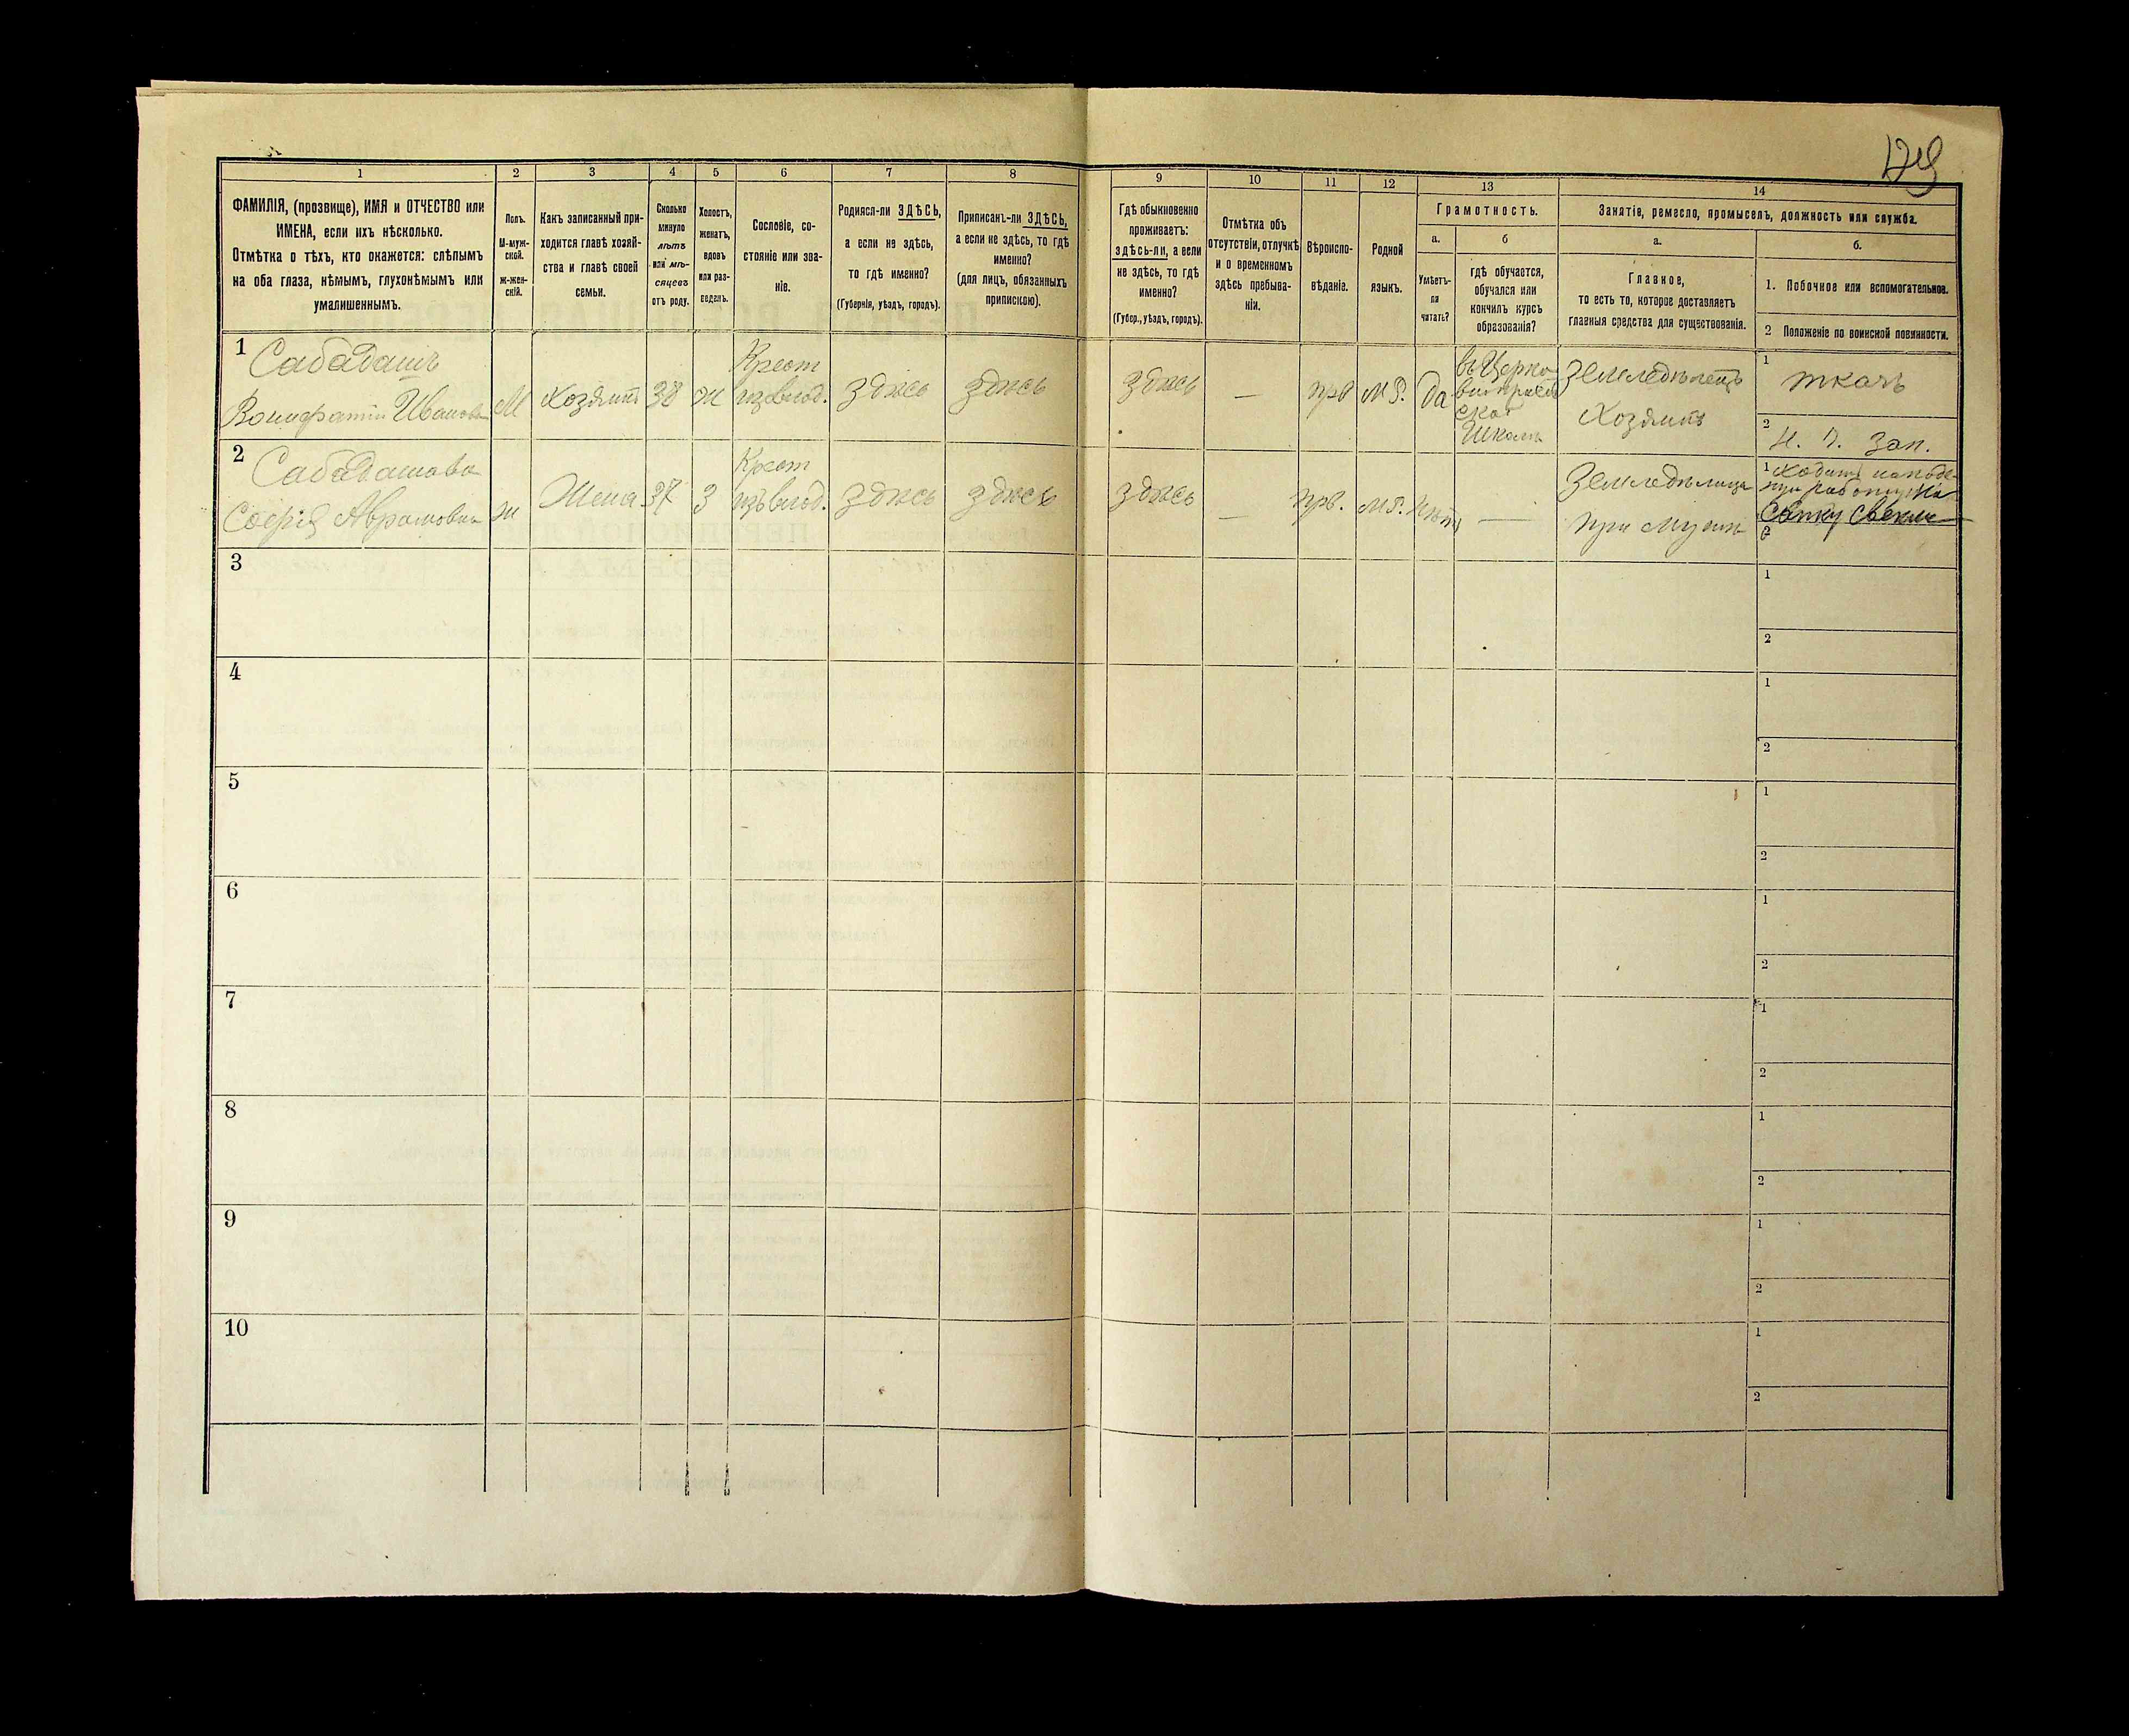 179
1 2 3 4 5 6 7 8 9 10 11 12 13 14
ФАМИЛІЯ, (прозвище), ИМЯ и ОТЧЕСТВО или
ИМЕНА, если ихъ нѣсколько.
Отмѣтка о тѣхъ, кто окажется: слѣпымъ
на оба глаза, нѣмымъ, глухонѣмымъ или
умалишеннымъ.
Полъ.
М-муж-
ской.
ж-жен-
скій.
Какъ записанный при-
ходится главѣ хозяй-
ства и главѣ своей
семьи.
Сколько
минуло
лѣтъ
или мѣ-
сяцевъ
отъ роду.
Холостъ,
женатъ,
вдовъ
или раз-
веденъ.
Сословіе, со-
стояніе или зва-
ніе.
Родился-ли ЗДѢСЬ,
а если не здѣсь,
то гдѣ именно?
(Губернія, уѣздъ, городъ).
Приписанъ-ли ЗДѢСЬ,
а если не здѣсь, то гдѣ
именно?
(для лицъ, обязанныхъ
припискою).
Гдѣ обыкновенно
проживаетъ:
здѣсь-ли, а если
не здѣсь, то гдѣ
именно?
(Губер., уѣздъ, городъ).
Отмѣтка объ
отсутствіи, отлучкѣ
и о временномъ
здѣсь пребыва-
ніи.
Вѣроиспо-
вѣданіе.
Родной
языкъ.
Грамотность.
а.
Умѣетъ-
ли
читать?
б
гдѣ обучается,
обучался или
кончилъ курсъ
образованія?
Занятіе, ремесло, промыселъ, должность или служба.
а.
Главное,
то есть то, которое доставляетъ
главныя средства для существованія.
б.
1. Побочное или вспомогательное.
2 Положеніе по воинской повинности.
1
Сабадашъ
Вонифатій Иванов
М
Хозяинъ
38
ж
Крест
изъ влад.
здѣсь
здѣсь
здѣсь
—
прв
М. Р.
Да
въ Церко
ской
Школѣ
Земледѣлецъ
Хозяинъ
1
ткачъ
2
Н. О. Зап.
2
Сабадашова
Софія Аврамовна
ж
Жена
37
З
Крест
изъ влад.
здѣсь
здѣсь
здѣсь
—
прв.
М. Р.
Нѣтъ
—
Земледѣлица
при мужѣ
1 Ходитъ на
работу на
свеклы
2
3
1
2
4
1
2
5
1
2
6
1
2
7
1
2
8
1
2
9
1
2
10
1
2